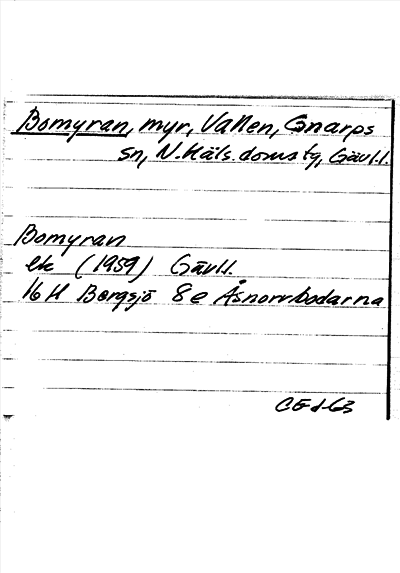 Bomyran, myr, Vallen, Gnarps
sn, N. Häls. domstg, Gävl.l.
Bomyran
ek (1959) Gävl.l.
16 H Bergsjö 8e Åsnorrbodarna